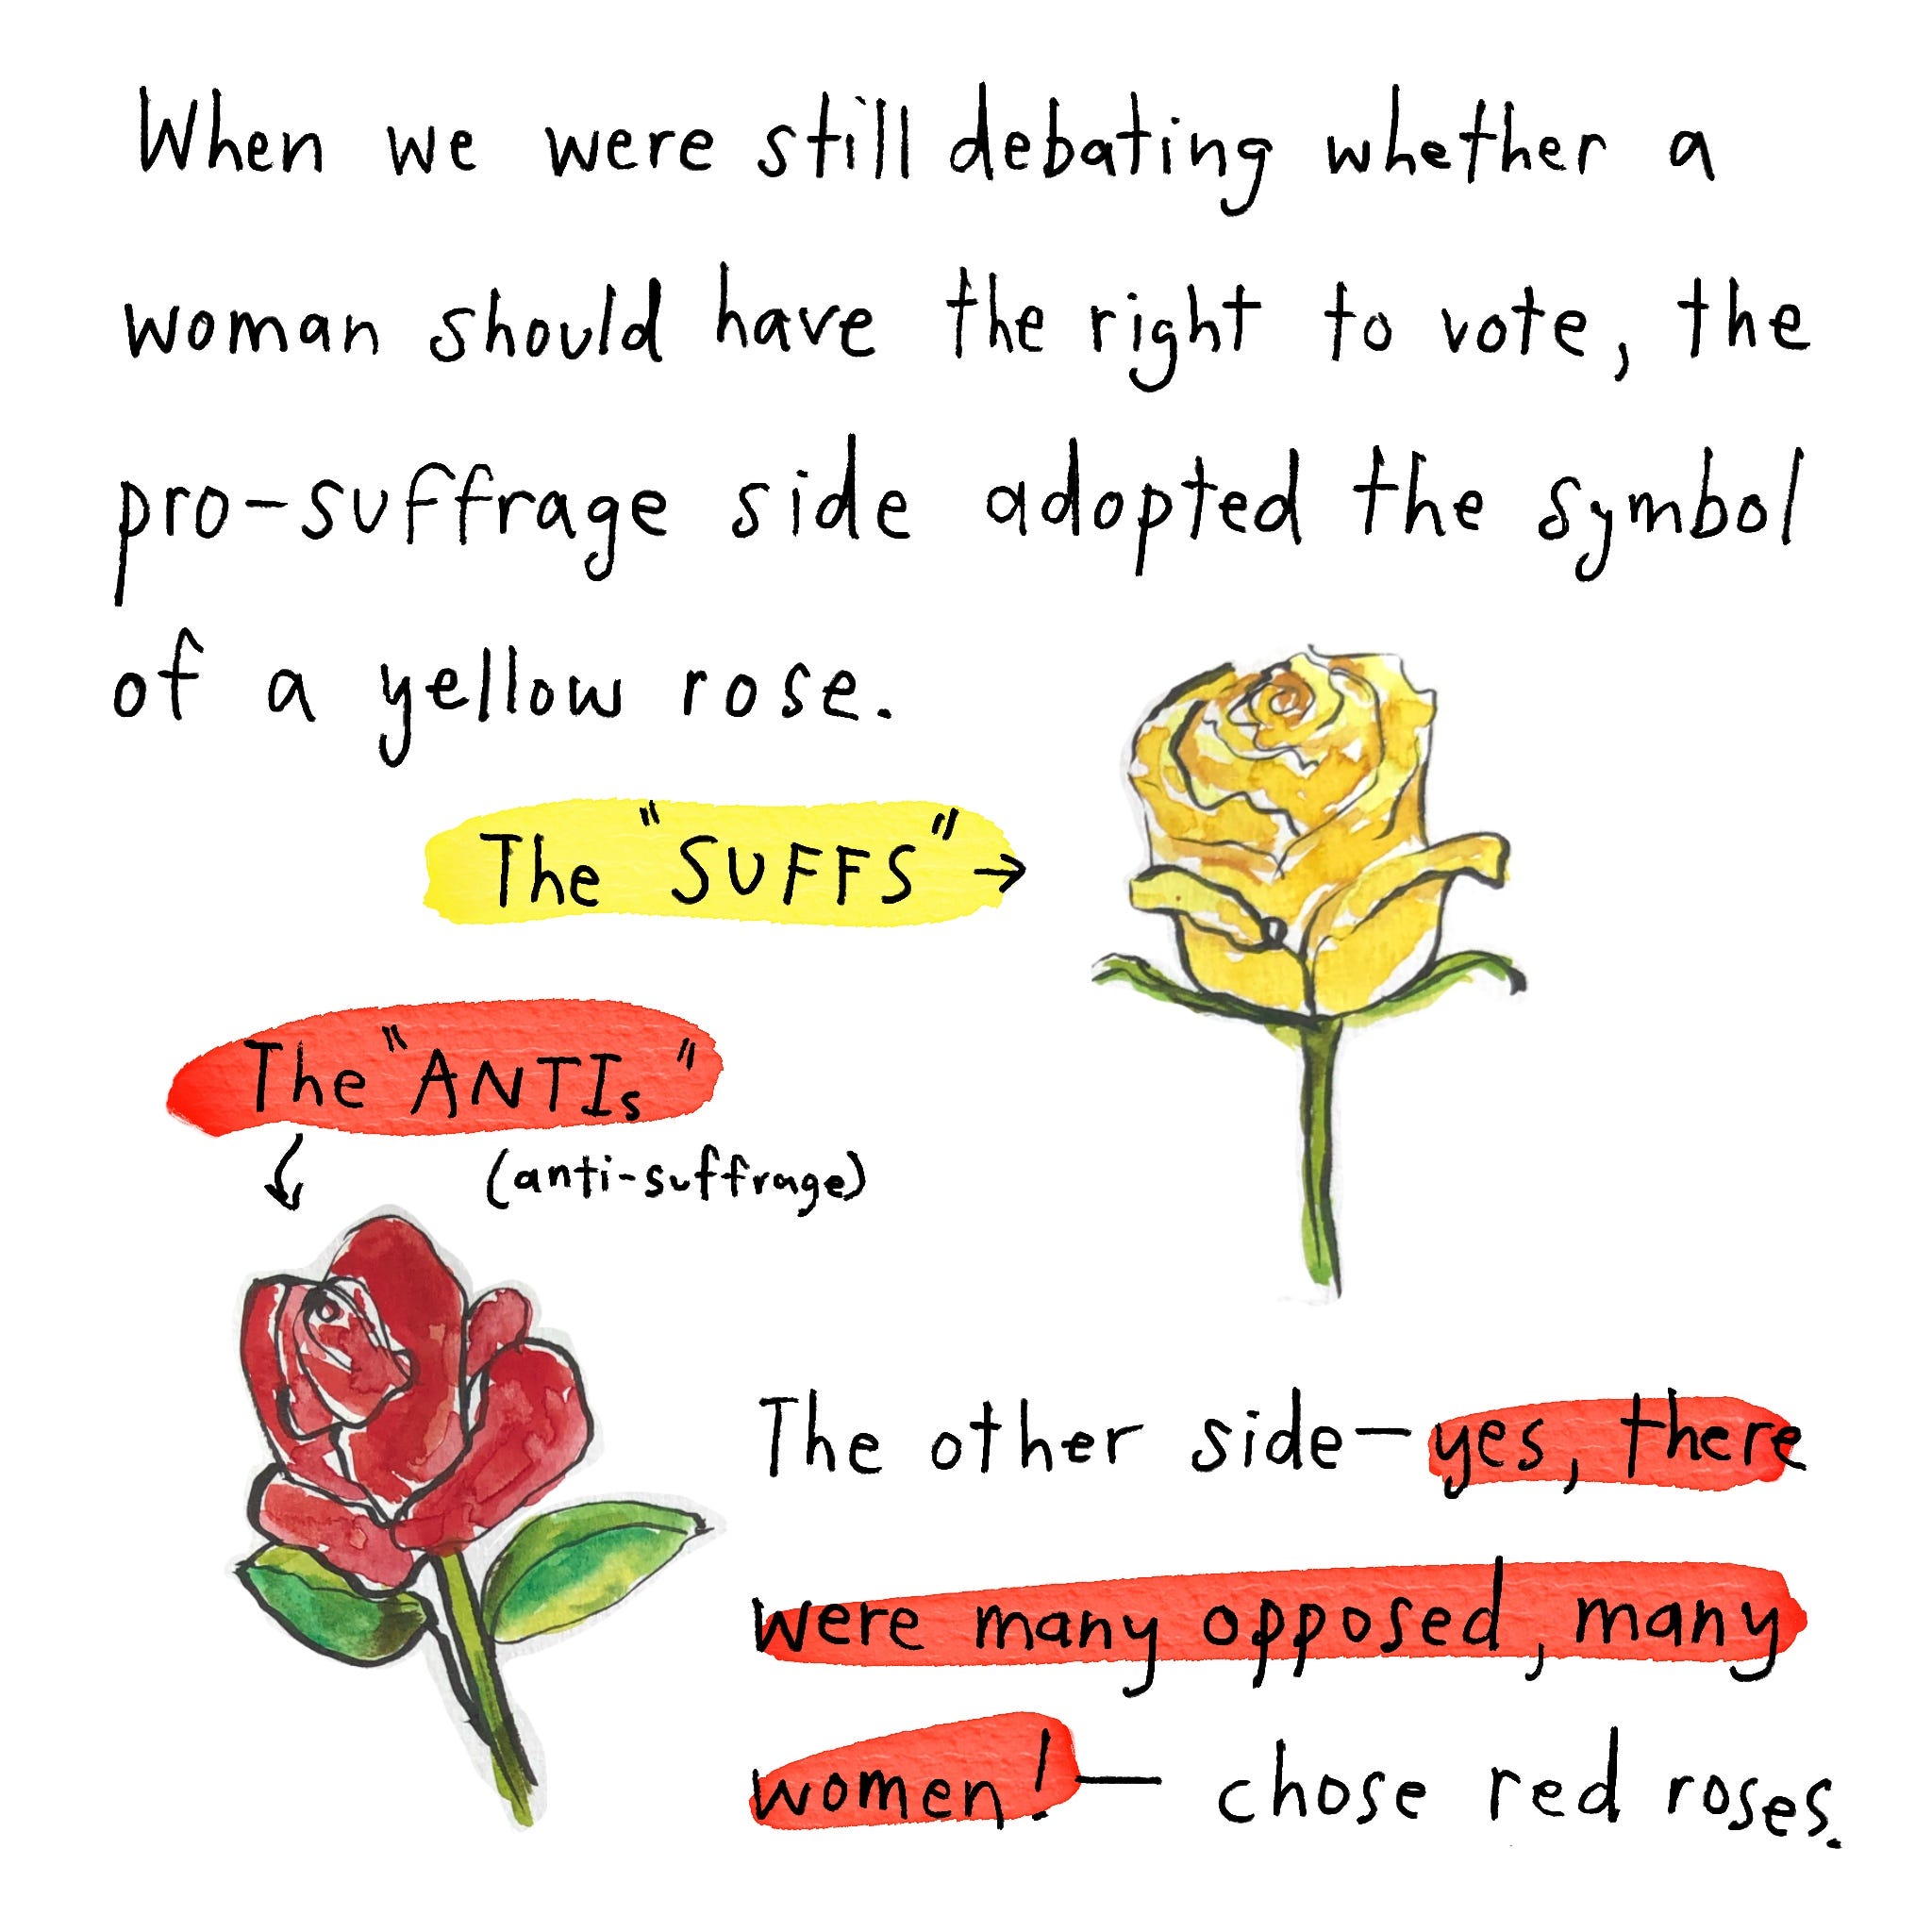 When we were still debating whether a
woman should have the right to vote, the
pro-suffrage side adopted the symbol
of a yellow rose.
The "SUFFS" →
The "ANTIs"
(anti-suffrage)
The other side—yes, there
were many opposed, many
women!— chose red roses.